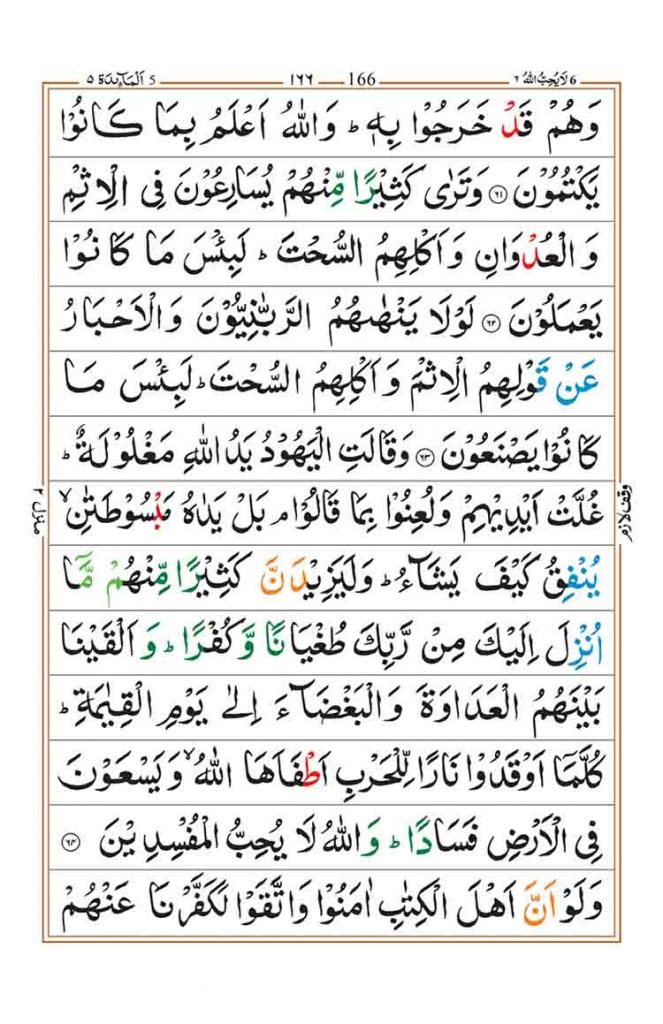 ٦ لَا يُحِبُّ اللهُ 6 166 ١٦٦ 5 اَلْمَآئِدَة ٥
وَهُمْ قَدْ خَرَجُوْا بِهٖ ؕ وَاللّٰهُ اَعْلَمُ بِمَا كَانُوْا
يَكْتُمُوْنَ ﴿٦١﴾ وَتَرٰى كَثِيْرًا مِّنْهُمْ يُسَارِعُوْنَ فِى الْاِثْمِ
وَالْعُدْوَانِ وَاَكْلِهِمُ السُّحْتَ ؕ لَبِئْسَ مَا كَانُوْا
يَعْمَلُوْنَ ﴿٦٢﴾ لَوْلَا يَنْهٰىهُمُ الرَّبّٰنِيُّوْنَ وَالْاَحْبَارُ
عَنْ قَوْلِهِمُ الْاِثْمَ وَاَكْلِهِمُ السُّحْتَ ؕ لَبِئْسَ مَا
كَانُوْا يَصْنَعُوْنَ ﴿٦٣﴾ وَقَالَتِ الْيَهُوْدُ يَدُ اللّٰهِ مَغْلُوْلَةٌ ؕ
غُلَّتْ اَيْدِيْهِمْ وَلُعِنُوْا بِمَا قَالُوْا ۘ بَلْ يَدٰهُ مَبْسُوْطَتٰنِ ۙ
يُنْفِقُ كَيْفَ يَشَآءُ ؕ وَلَيَزِيْدَنَّ كَثِيْرًا مِّنْهُمْ مَّا
اُنْزِلَ اِلَيْكَ مِنْ رَّبِّكَ طُغْيَانًا وَّكُفْرًا ؕ وَاَلْقَيْنَا
بَيْنَهُمُ الْعَدَاوَةَ وَالْبَغْضَآءَ اِلٰى يَوْمِ الْقِيٰمَةِ ؕ
كُلَّمَآ اَوْقَدُوْا نَارًا لِّلْحَرْبِ اَطْفَاَهَا اللّٰهُ ۙ وَيَسْعَوْنَ
فِى الْاَرْضِ فَسَادًا ؕ وَاللّٰهُ لَا يُحِبُّ الْمُفْسِدِيْنَ ﴿٦٤﴾
وَلَوْ اَنَّ اَهْلَ الْكِتٰبِ اٰمَنُوْا وَاتَّقَوْا لَكَفَّرْنَا عَنْهُمْ
وقف لازم
منزل ٢